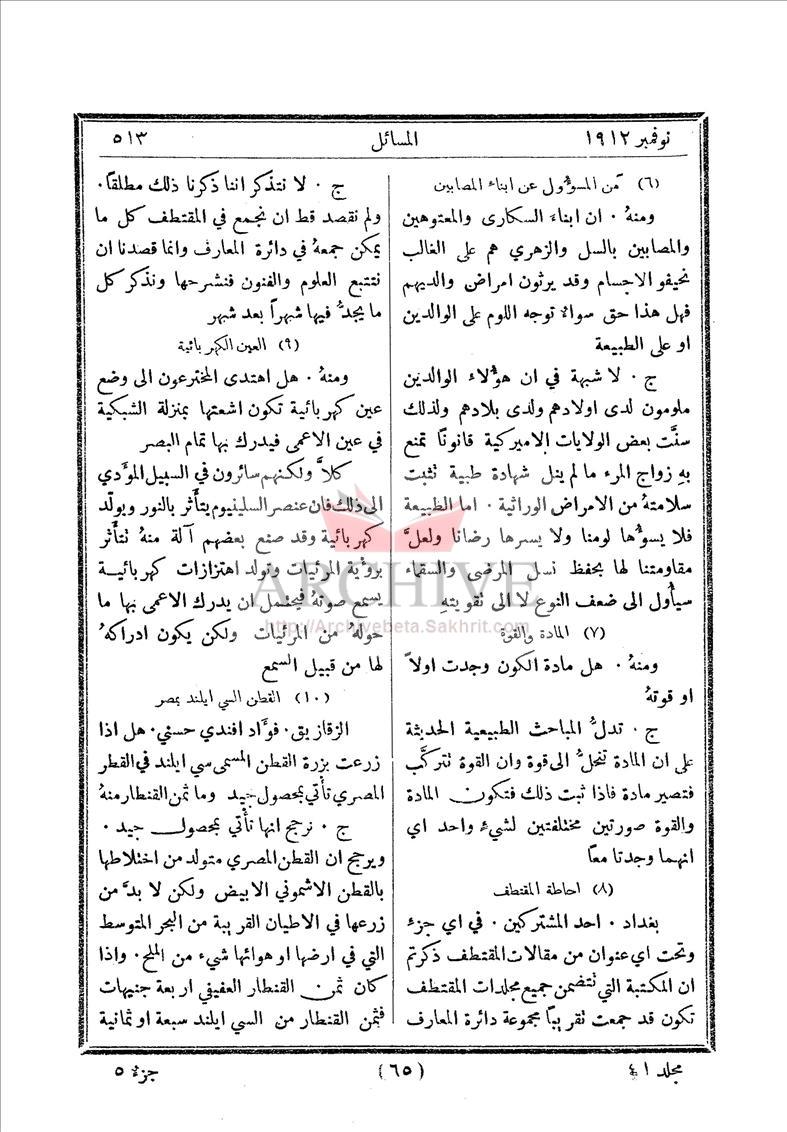 نوفمبر ١٩١٢
المسائل
٥١٣
(٦) مَن المسؤول عن ابناء المصابين
ومنهُ . ان ابناء السكارى والمعتوهين
والمصابين بالسل والزهري هم على الغالب
نحيفو الاجسام وقد يرثون امراض والديهم
فهل هذا حق سواءٌ توجه اللوم على الوالدين
او على الطبيعة
ج . لا شبهة في ان هؤلاء الوالدين
ملومون لدى اولادهم ولدى بلادهم ولذلك
سنَّت بعض الولايات الاميركية قانونًا تمنع
بهِ زواج المرء ما لم ينل شهادة طبية تثبت
سلامتهُ من الامراض الوراثية . اما الطبيعة
فلا يسوءُها لومنا ولا يسرها رضانا ولعلَّ
مقاومتنا لها بحفظ نسل المرضى والسقماء
سيأول الى ضعف النوع لا الى تقويتهِ
(٧) المادة والقوة
ومنهُ . هل مادة الكون وجدت اولاً
او قوتهُ
ج . تدلُّ المباحث الطبيعية الحديثة
على ان المادة تنحلُّ الى قوة وان القوة تتركَّب
فتصير مادة فاذا ثبت ذلك فتكون المادة
والقوة صورتين مختلفتين لشيءٍ واحد اي
انهما وجدتا معًا
(٨) احاطة المقتطف
بغداد . احد المشتركين . في اي جزء
وتحت اي عنوان من مقالات المقتطف ذكرتم
ان المكتبة التي تتضمن جميع مجلدات المقتطف
تكون قد جمعت تقريبًا مجموعة دائرة المعارف
ج . لا نتذكر اننا ذكرنا ذلك مطلقًا .
ولم نقصد قط ان نجمع في المقتطف كل ما
يمكن جمعهُ في دائرة المعارف وانما قصدنا ان
نتتبع العلوم والفنون فنشرحها ونذكر كل
ما يجدُّ فيها شهراً بعد شهر
(٩) العين الكهربائية
ومنهُ . هل اهتدى المخترعون الى وضع
عين كهربائية تكون اشعتها بمنزلة الشبكية
في عين الاعمى فيدرك بها تمام البصر
كلاَّ ولكنهم سائرون في السبيل المؤدي
الى ذلك فان عنصر السلينيوم يتأثر بالنور ويولد
كهربائية وقد صنع بعضهم آلة منهُ تتأثر
برؤية المرئيات وتولد اهتزازات كهربائية
يسمع صوتهُ فيحتمل ان يدرك الاعمى بها ما
حولهُ من المرئيات ولكن يكون ادراكهُ
لها من قبيل السمع
(١٠) القطن السي ايلند بمصر
الزقازيق . فؤاد افندي حسني . هل اذا
زرعت بزرة القطن المسمى سي ايلند في القطر
المصري تأتي بمحصول جيد وما ثمن القنطار منهُ
ج . نرجح انها تأتي بمحصول جيد .
ويرجح ان القطن المصري متولد من اختلاطها
بالقطن الاشموني الابيض ولكن لا بدَّ من
زرعها في الاطيان القريبة من البحر المتوسط
التي في ارضها او هوائها شيء من الملح . واذا
كان ثمن القنطار العفيفي اربعة جنيهات
فثمن القنطار من السي ايلند سبعة او ثمانية
ARCHIVE
http://Archivebeta.Sakhrit.com
مجلد ٤١
(٦٥)
جزء ٥